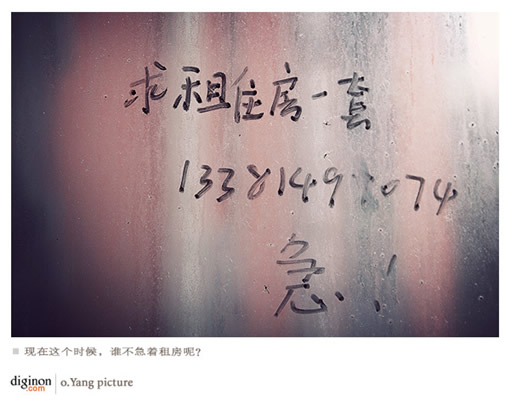 求租住房一套
急!
现在这个时候，谁不急着租房呢?
diginon
.com
o.Yang picture